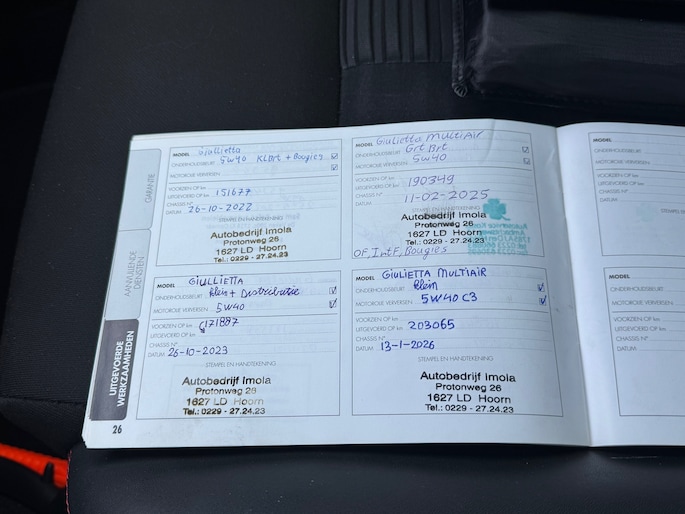 GARANTIE
AANVULLENDE
DIENSTEN
UITGEVOERDE
WERKZAAMHEDEN
26
MODEL Giullietta
ONDERHOUDSBEURT 5W40 KLBrt + Bougies
MOTOROLIE VERVERSEN
VOORZIEN OP km
UITGEVOERD OP km 151677
CHASSIS N°
DATUM 26-10-2022
STEMPEL EN HANDTEKENING
Autobedrijf Imola
Protonweg 26
1627 LD Hoorn
Tel.: 0229 - 27.24.23
MODEL Giulietta MultiAir
ONDERHOUDSBEURT Grt Brt
MOTOROLIE VERVERSEN 5W40
VOORZIEN OP km
UITGEVOERD OP km 190349
CHASSIS N°
DATUM 11-02-2025
STEMPEL EN HANDTEKENING
Autobedrijf Imola
Protonweg 26
1627 LD Hoorn
Tel.: 0229 - 27.24.23
OF, IntF, Bougies
MODEL GIULLIETTA
ONDERHOUDSBEURT klein + Distributie
MOTOROLIE VERVERSEN 5W40
VOORZIEN OP km
UITGEVOERD OP km 171887
CHASSIS N°
DATUM 26-10-2023
STEMPEL EN HANDTEKENING
Autobedrijf Imola
Protonweg 26
1627 LD Hoorn
Tel.: 0229 - 27.24.23
MODEL GIULIETTA MULTIAIR
ONDERHOUDSBEURT klein
MOTOROLIE VERVERSEN 5W40 C3
VOORZIEN OP km
UITGEVOERD OP km 203065
CHASSIS N°
DATUM 13-1-2026
STEMPEL EN HANDTEKENING
Autobedrijf Imola
Protonweg 26
1627 LD Hoorn
Tel.: 0229 - 27.24.23
MODEL
ONDERHOUDSBEURT
MOTOROLIE VERVERSEN
VOORZIEN OP km
UITGEVOERD OP km
CHASSIS N°
DATUM
MODEL
ONDERHOUDSBEURT
MOTOROLIE VERVERSEN
VOORZIEN OP km
UITGEVOERD OP km
CHASSIS N°
DATUM